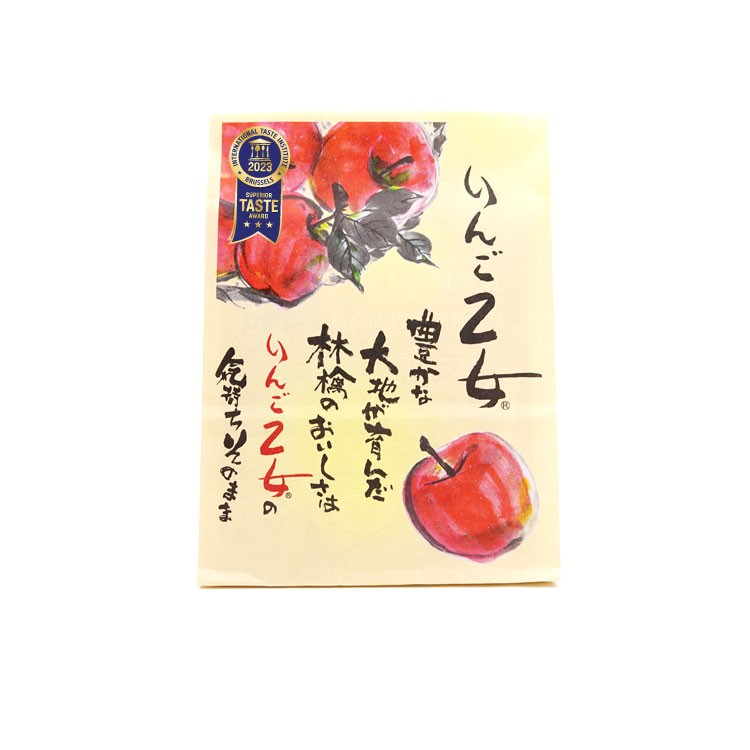 INTERNATIONAL TASTE INSTITUTE
2023
BRUSSELS
SUPERIOR
TASTE
AWARD
りんご乙女®
豊かな
大地が育んだ
林檎のおいしさは
りんご乙女®の
気持ちそのまま